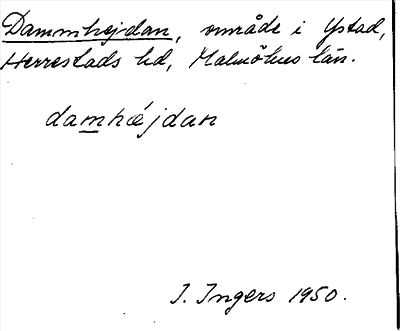 Dammhejdan, område i Ystad,
Herrestads hd, Malmöhus län.
damhæjdan
I. Ingers 1950.